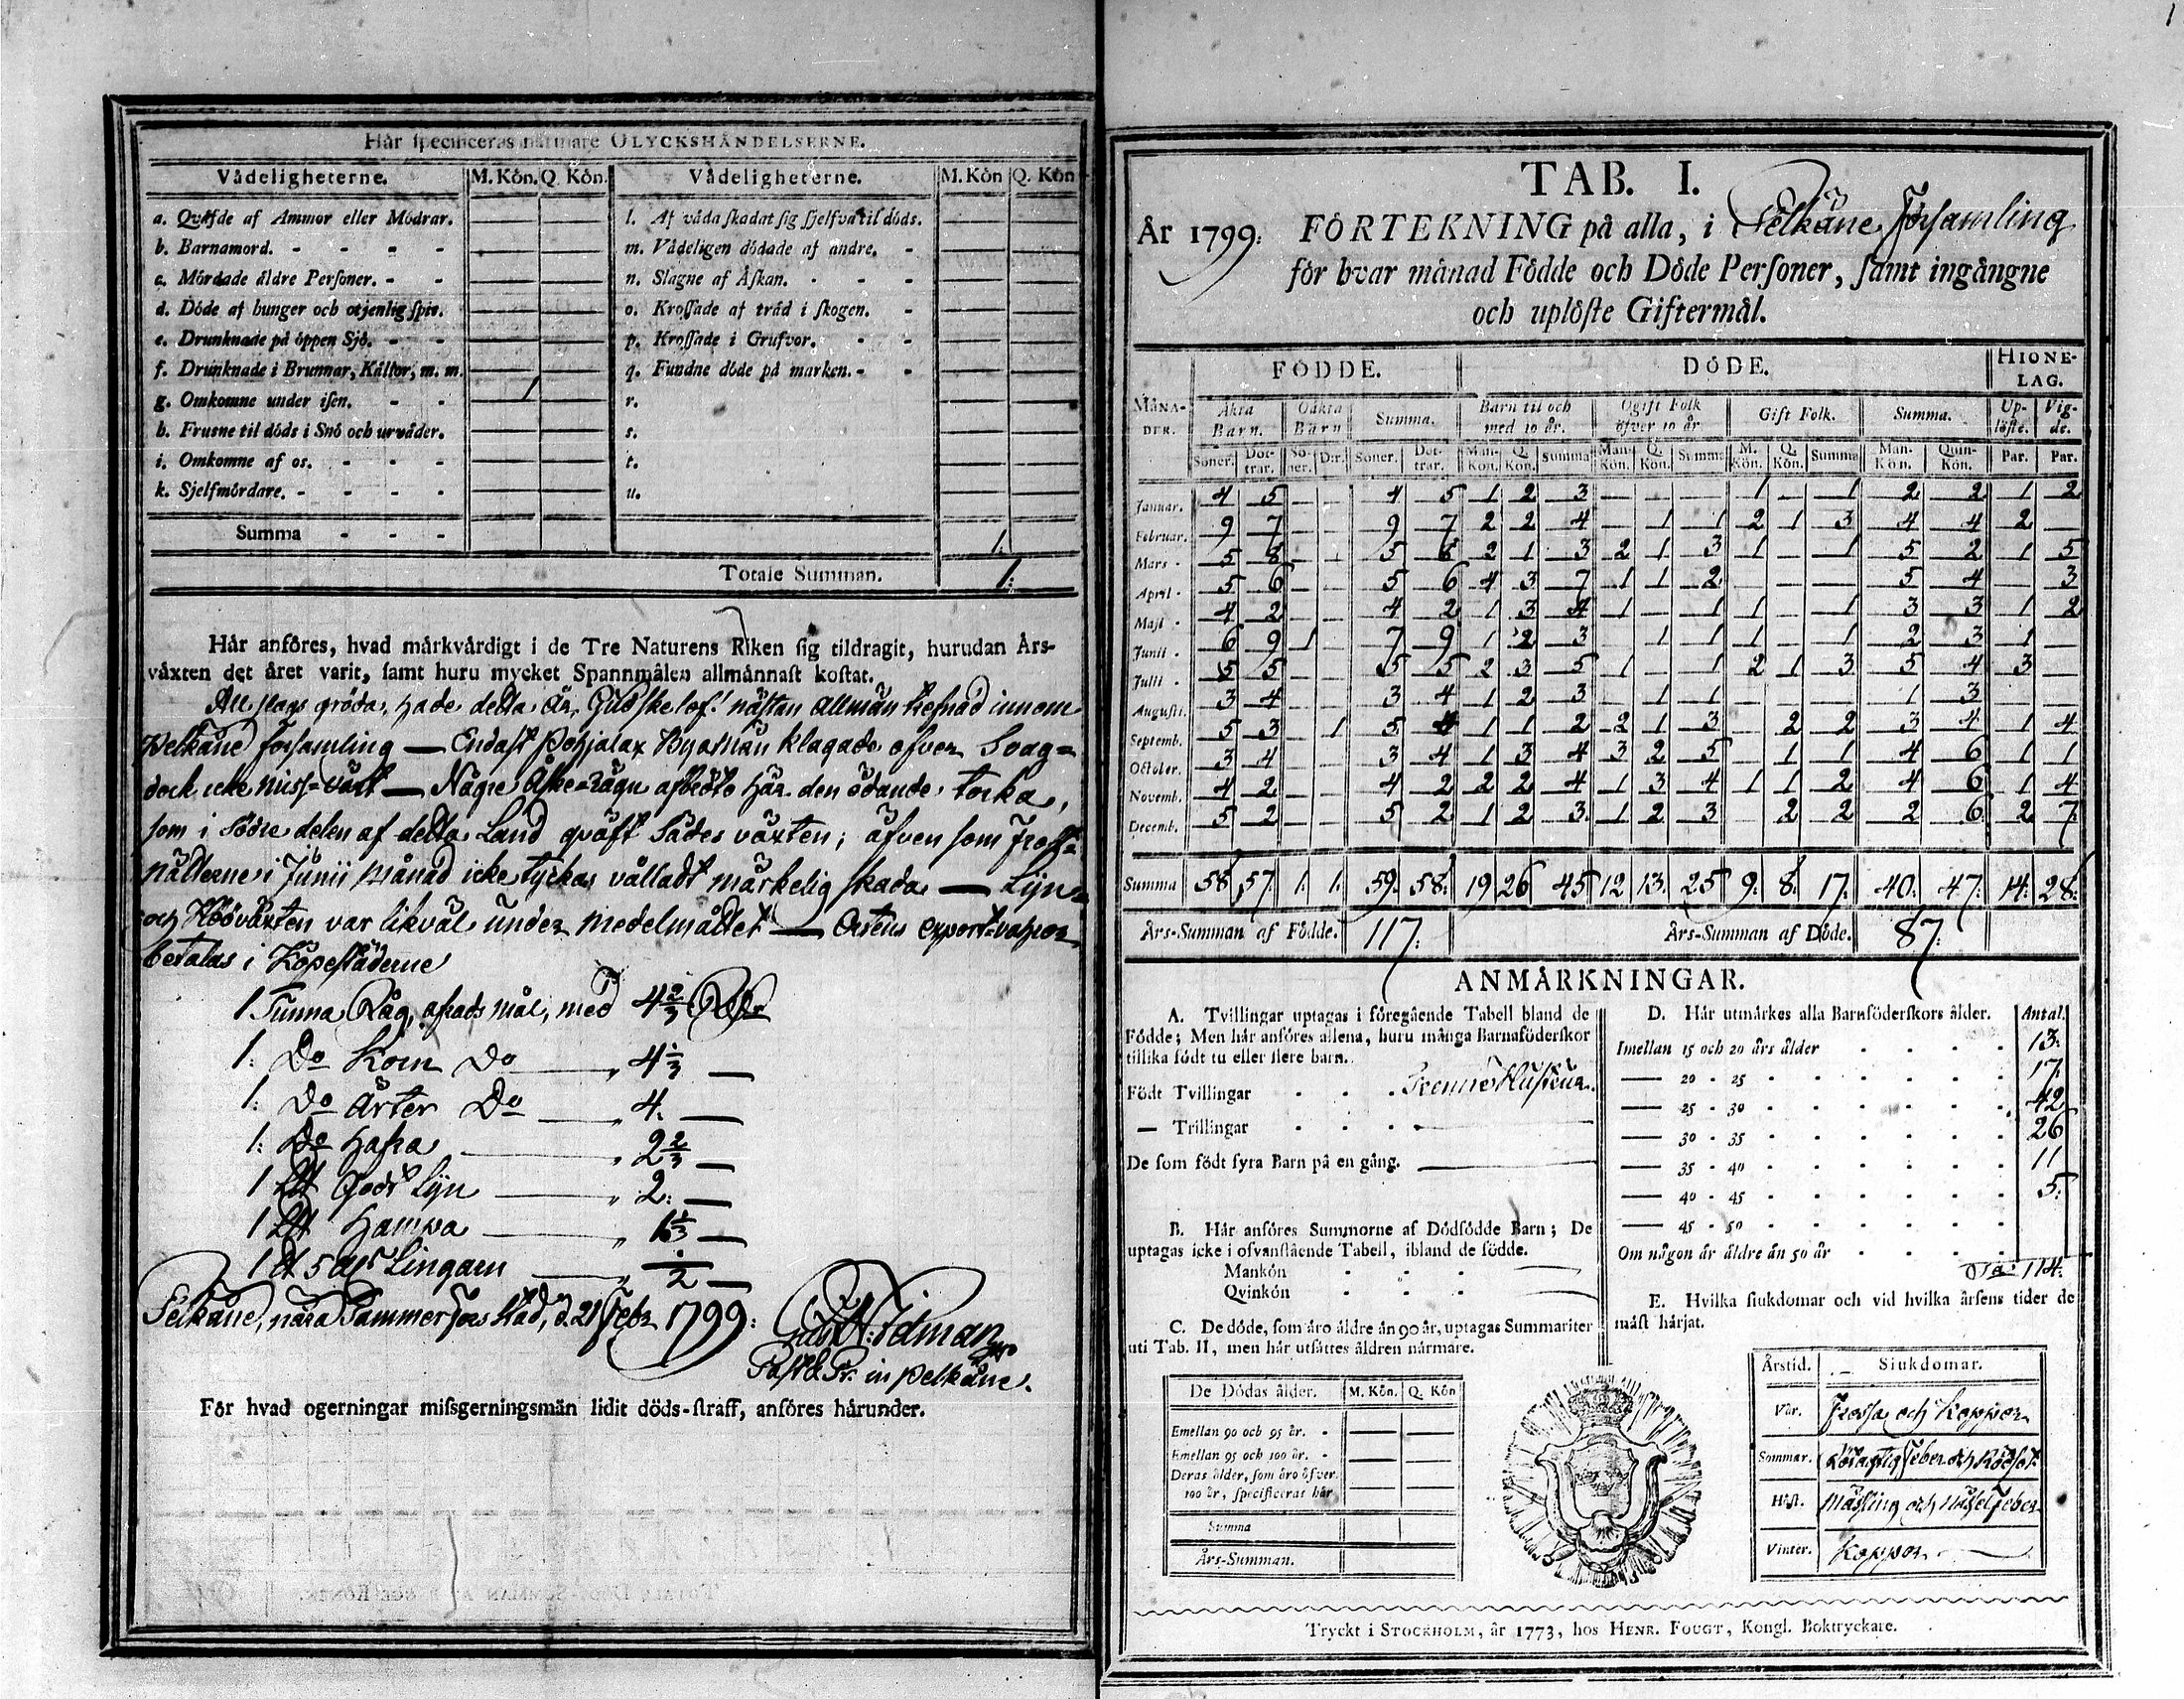 Hår specificeras nårmare OLYCKSHÅNDELSERNE.
Vådeligheterne. M. Kón. Q. Kón. Vådeligheterne. M. Kón Q. Kón
a. Qvåfde af Ammor eller Módrar. — — l. Af våda skadat sig sjelfva til dóds. — —
b. Barnamord. — — m. Vådeligen dódade af andre. — —
c. Mórdade åldre Personer. — — n. Slagne af Åskan. — —
d. Dóde af hunger och otjenlig spis. — — o. Krossade af tråd i skogen. — —
e. Drunknade på óppen Sjó. — — p. Krossade i Grufvor. — —
f. Drunknade i Brunnar, Kållor, m. m. — — q. Fundne dóde på marken. — —
g. Omkomne under isen. 1 — r. — —
h. Frusne til dóds i Snó och urvåder. — — s. — —
i. Omkomne af os. — — t. — —
k. Sjelfmórdare. — — u. — —
Summa — — 1.
Totale Summan. 1:
Hår anfóres, hvad mårkvårdigt i de Tre Naturens Riken sig tildragit, hurudan Års-
våxten det året varit, samt huru mycket Spannmålen allmånnast kostat.
All slags gröda, hade detta År, Gud ske lof! nästan Allmän trefnad innom
Pelkäne församling — Endast Pohjalax Byamän klagade öfver Svag=
dock icke miss=växt — Någre Åske=rägn afböjde här den ödande torka,
som i Södre delen af detta Land qväft Sädes växten; äfven som frost=
nätterne i Junii Månad icke tyckas vålladt märkelig skada — Lijn=
och Höväxten var likväl under medelmåttet — Ortens export=vahror
betalas i Köpestäderne
1 Tunna Råg, afrads mål, med 4 2/3 RDr
1: Do Korn Do — „ 4 1/3 —
1: Do Ärter Do — „ 4. —
1: Do Hafra — „ 2 2/3 —
1 L℔ Godt Lijn — „ 2: —
1 L℔ Hampa — „ 1 1/3 —
1 ℔ Lingarn — „ 1/2 —
Pelkäne, nära Tammerfors stad, d. 21 Febr 1799:
Past. & Pr. in Pelkäne.
Fór hvad ogerningar missgerningsmån lidit dóds-straff, anfóres hårunder.
TAB. I.
År 1799: FÓRTEKNING på alla, i Pelkäne Församling
fór hvar månad Fódde och Dóde Personer, samt ingångne
och uplóste Giftermål.
FÓDDE. DÓDE. HIONE-LAG.
MÅNA-DER. Åkta Barn. Oåkta Barn Summa. Barn til och med 10 år. Ogift Folk ófver 10 år Gift Folk. Summa. Up-lóste. Vig-de.
Sóner. Dót-trar. Só-ner. Dtr. Sóner. Dót-trar. Man-Kón. Q. Kón. Summa Man-Kón. Q. Kón. Summa M. Kón. Q. Kón. Summa Man-Kón. Quin-Kón. Par. Par.
Januar. 4 5 — — 4 5 1 2 3 — — — 1 — 1 2 2 1 2
Februar. 9 7 — — 9 7 2 2 4 — 1 1 2 1 3 4 4 2 —
Mars 5 8 — — 5 8 2 1 3 2 1 3 1 — 1 5 2 1 5
April 5 6 — — 5 6 4 3 7 1 1 2 — — — 5 4 — 3
Maji 4 2 — — 4 2 1 3 4 1 — 1 1 — 1 3 3 1 2
Junii 6 9 1 — 7 9 1 2 3 — 1 1 1 — 1 2 3 1 —
Julii 5 5 — — 5 5 2 3 5 1 — 1 2 1 3 5 4 3 —
Augusti. 3 4 — — 3 4 1 2 3 — 1 1 — — — 1 3 — —
Septemb. 5 3 — 1 5 4 1 1 2 2 1 3 — 2 2 3 4 1 4
October. 3 4 — — 3 4 1 3 4 3 2 5 — 1 1 4 6 1 1
Novemb. 4 2 — — 4 2 2 2 4 1 3 4 1 1 2 4 6 1 4
Decemb. 5 2 — — 5 2 1 2 3 1 2 3 — 2 2 2 6 2 7
Summa 58 57 1. 1. 59. 58. 19 26 45 12 13. 25 9. 8. 17. 40. 47. 14. 28.
Års-Summan af Fódde. 117: Års-Summan af Dóde. 87:
ANMÅRKNINGAR.
A. Tvillingar uptagas i fóregående Tabell bland de
Fódde; Men hår anfóres allena, huru många Barnafóderskor
tillika fódt tu eller flere barn.
Fódt Tvillingar Trenne Hustrur.
— Trillingar —
De som fódt fyra Barn på en gång. —
B. Hår anfóres Summorne af Dódfódde Barn; De
uptagas icke i ofvanstående Tabell, ibland de fódde.
Mankón —
Qvinkón —
C. De dóde, som åro åldre ån 90 år, uptagas Summariter
uti Tab. II, men hår utsåttes åldren nårmare.
De Dódas ålder. M. Kón. Q. Kón
Emellan 90 och 95 år. — —
Emellan 95 och 100 år. — —
Deras ålder, som åro ófver
100 år, specificeras hår — —
Summa
Års-Summan.
D. Hår utmårkes alla Barnfóderskors ålder. Antal.
Imellan 15 och 20 års ålder 13:
— 20 - 25 17.
— 25 - 30 42
— 30 - 35 26
— 35 - 40 11
— 40 - 45 5.
— 45 - 50
Om någon år åldre ån 50 år
S:a 114:
E. Hvilka siukdomar och vid hvilka årsens tider de
måst hårjat.
Årstid. Siukdomar.
Vår. Frossa och Koppor
Sommar. Rötagtig feber och Rödsot
Hóst. Mässling och Nässelfeber
Vinter. Koppor —
Tryckt i STOCKHOLM, år 1773, hos HENR. FOUGT, Kongl. Boktryckare.